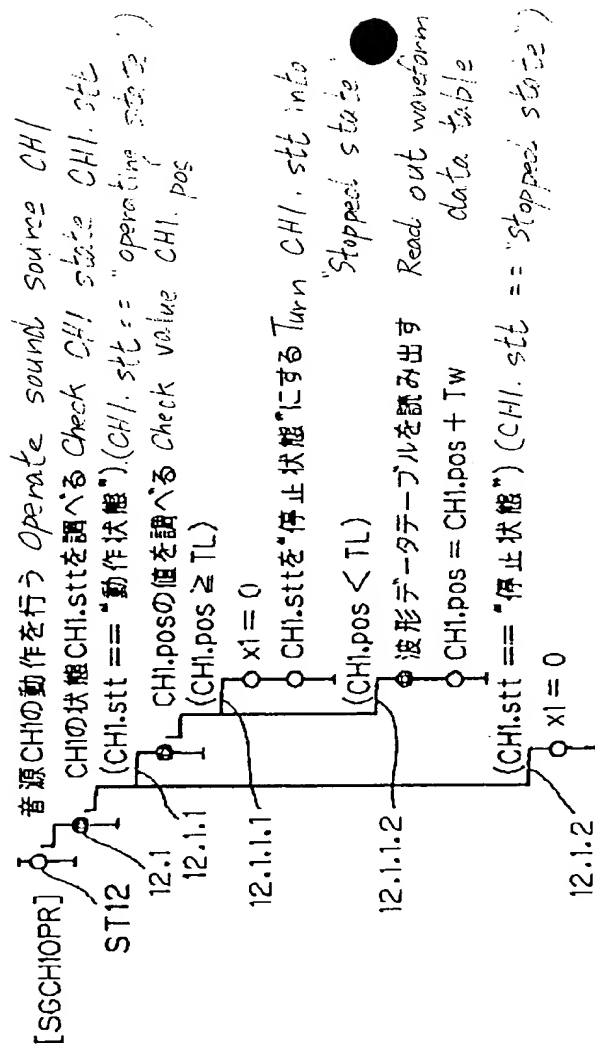 [SGCH1OPR]
音源CH1の動作を行う Operate sound source CH1
ST12
CH1の状態CH1.sttを調べる Check CH1 state CH1.stt
12.1
(CH1.stt == "動作状態") (CH1.stt == "operating state")
12.1.1
CH1.posの値を調べる Check value CH1.pos
(CH1.pos ≥ TL)
12.1.1.1
x1 = 0
CH1.sttを"停止状態"にする Turn CH1.stt into
"Stopped state"
(CH1.pos < TL)
12.1.1.2
波形データテーブルを読み出す Read out waveform
data table
CH1.pos = CH1.pos + Tw
(CH1.stt == "停止状態") (CH1.stt == "Stopped state")
12.1.2
x1 = 0